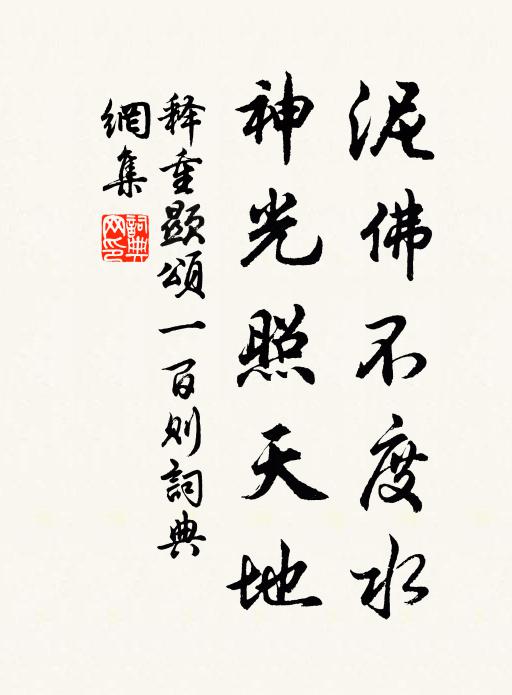 泥佛不度水
神光照天地
释重顯頌一百则詞典
網集
詞典網印